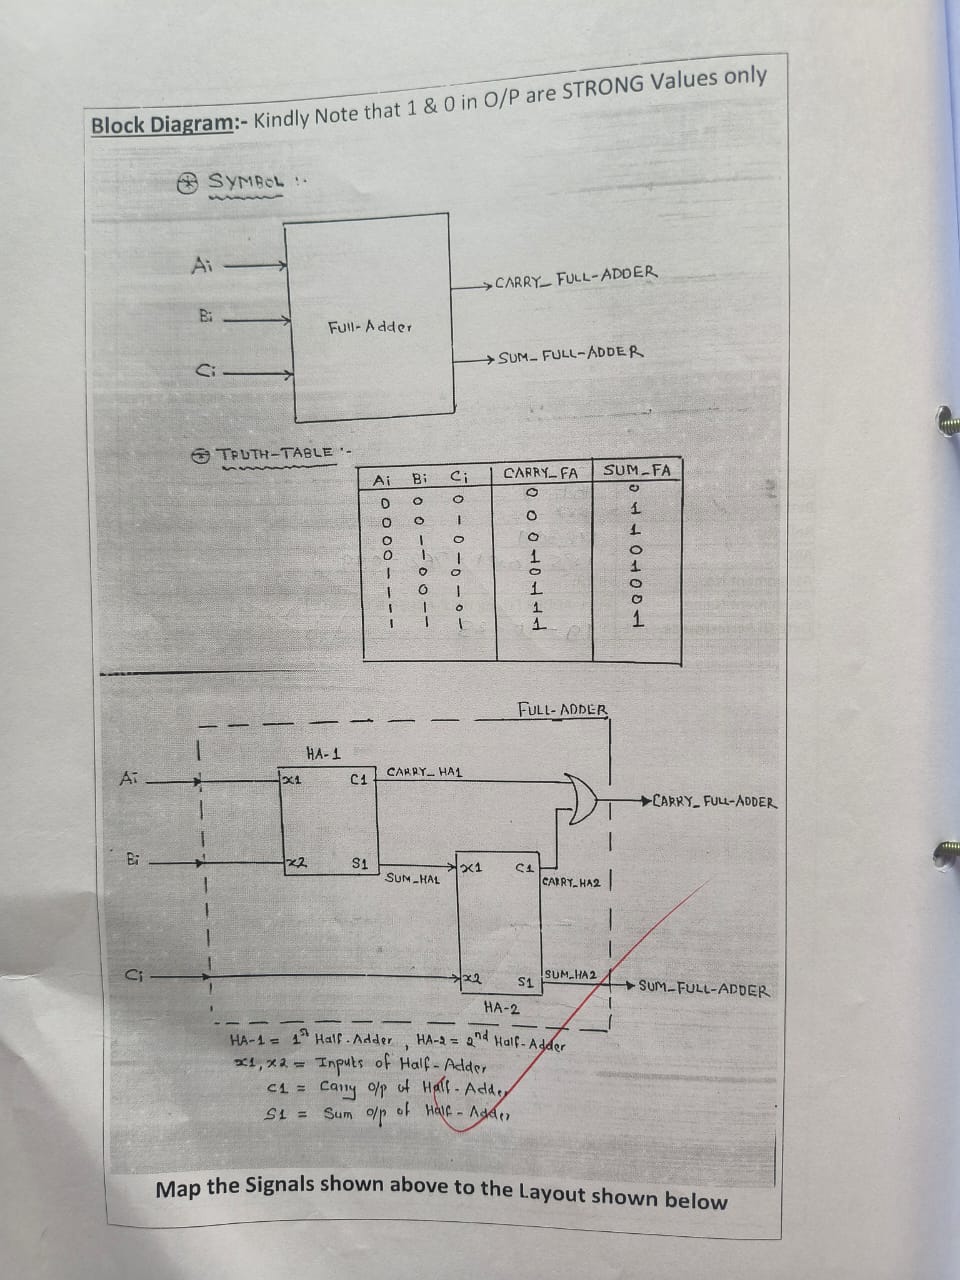 Block Diagram:- Kindly Note that 1 & 0 in O/P are STRONG Values only
SYMBOL :-
Ai
Bi
Ci
Full-Adder
CARRY_ FULL-ADDER
SUM_ FULL-ADDER
TRUTH-TABLE :-
Ai Bi Ci CARRY_FA SUM_FA
0 0 0 0 0
0 0 1 0 1
0 1 0 0 1
0 1 1 1 0
1 0 0 0 1
1 0 1 1 0
1 1 0 1 0
1 1 1 1 1
FULL-ADDER
HA-1
Ai x1 C1 CARRY_HA1
CARRY_FULL-ADDER
Bi x2 S1
SUM_HA1
x1 C1
CARRY_HA2
Ci x2 S1 SUM_HA2
SUM_FULL-ADDER
HA-2
HA-1 = 1st Half-Adder, HA-2 = 2nd Half-Adder
x1, x2 = Inputs of Half-Adder
C1 = Carry o/p of Half-Adder
S1 = Sum o/p of Half-Adder
Map the Signals shown above to the Layout shown below